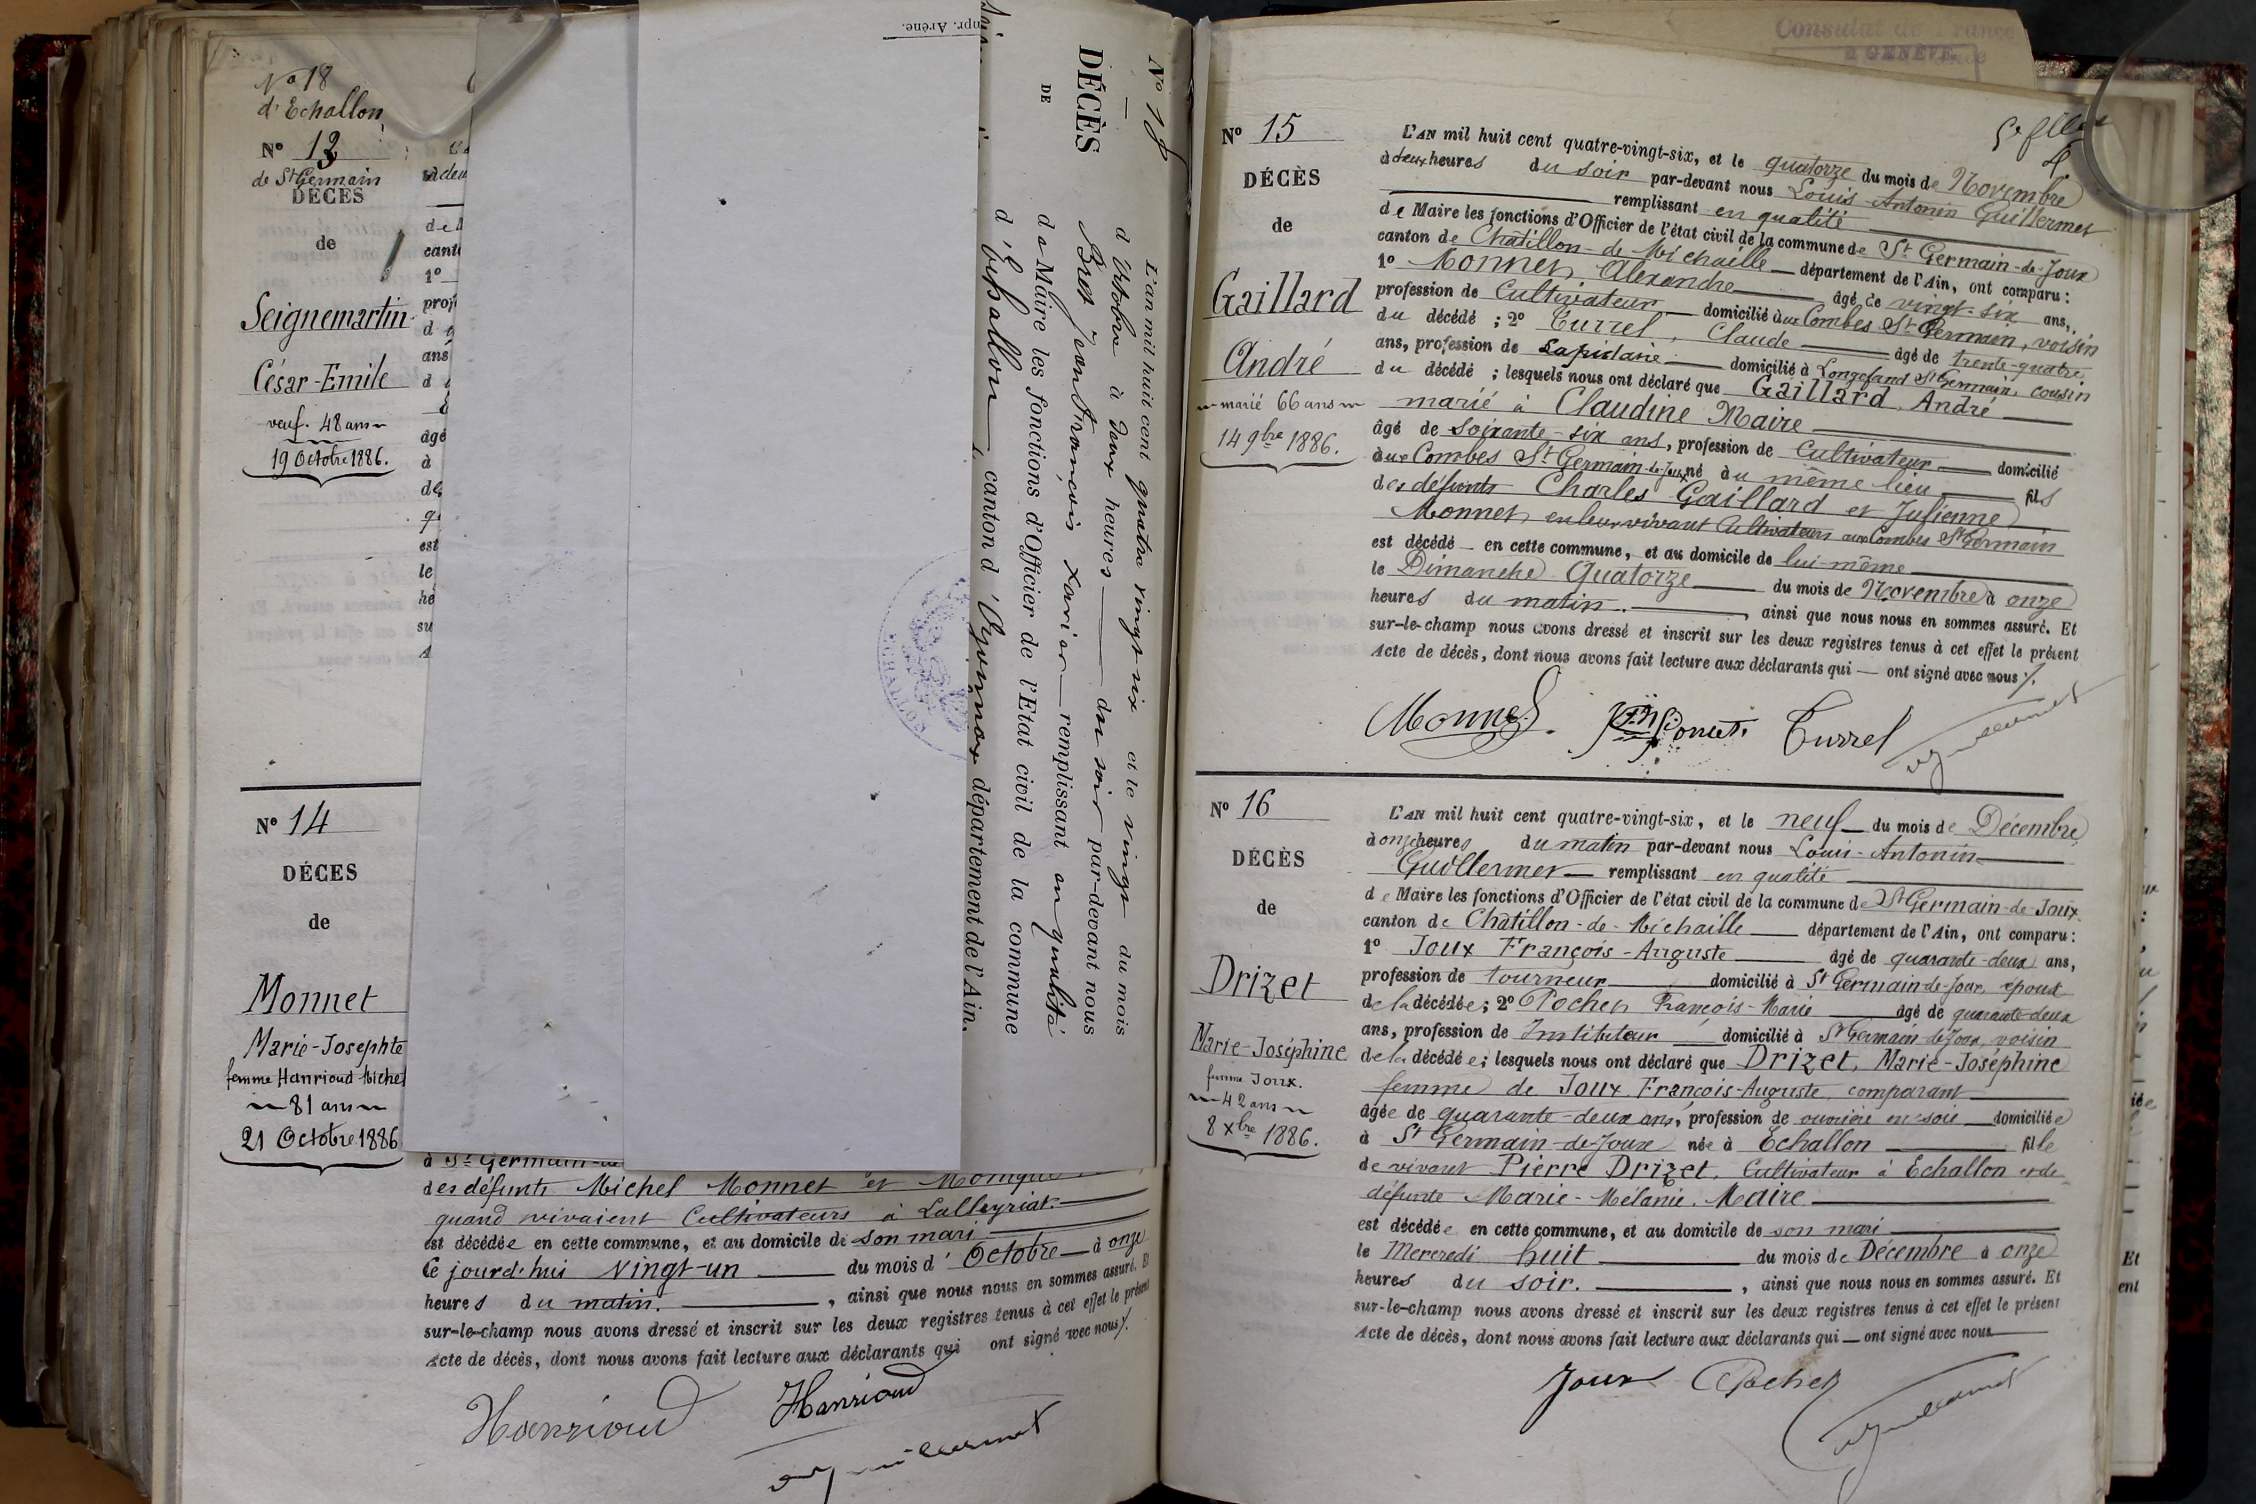 No 18
d'Echallon
No 13
de St Germain
DÉCES
de
Seignemartin
César-Emile
veuf. 48 ans
19 Octobre 1886.
de
cant
1o
prof
ans
âgé
à
est
le
he
su
No 14
DÉCES
de
Monnet
Marie-Josephte
femme Hanrioud Michel
81 ans
21 Octobre 1886
à St Germain-
des défunts Michel Monnet et Monique
quand vivaient Cultivateurs à Lalleyriat.
est décédée en cette commune, et au domicile de son mari
Ce jourd'hui vingt-un du mois d'Octobre à onze
heures du matin. , ainsi que nous nous en sommes assuré. Et
sur-le-champ nous avons dressé et inscrit sur les deux registres tenus à cet effet le présent
Acte de décès, dont nous avons fait lecture aux déclarants qui ont signé avec nous
Hanrioud Hanrioud
Guillermet
mpr. Arène.
No 18
DÉCÈS
DE
L'an mil huit cent quatre vingt six et le vingt du mois
d'Octobre à deux heures du soir par-devant nous
Bret Jean François Xavier remplissant en qualité
de Maire les fonctions d'Officier de l'Etat civil de la commune
d'Echallon, canton d'Oyonnax département de l'Ain.
ECHALLON
Consulat de France
à GENÈVE
No 15
DÉCÈS
de
Gaillard
André
marié 66 ans
14 9bre 1886.
L'AN mil huit cent quatre-vingt-six, et le quatorze du mois de Novembre
à deux heures du soir par-devant nous Louis-Antonin Guillermet
remplissant en qualité
de Maire les fonctions d'Officier de l'état civil de la commune de St Germain-de-Joux
canton de Châtillon-de-Michaille département de l'Ain, ont comparu :
1o Monnet Alexandre âgé de vingt-six ans,
profession de Cultivateur domicilié aux Combes St Germain, voisin
du décédé ; 2o Turrel, Claude âgé de trente-quatre
ans, profession de Lapidaire domicilié à Longefand St Germain, cousin
du décédé ; lesquels nous ont déclaré que Gaillard André
marié à Claudine Maire
âgé de soixante-six ans, profession de Cultivateur domicilié
aux Combes St Germain-de-Joux né au même lieu fils
des défunts Charles Gaillard et Julienne
Monnet en leur vivant Cultivateurs aux Combes St Germain
est décédé en cette commune, et au domicile de lui-même
le Dimanche Quatorze du mois de Novembre à onze
heures du matin. , ainsi que nous nous en sommes assuré. Et
sur-le-champ nous avons dressé et inscrit sur les deux registres tenus à cet effet le présent
Acte de décès, dont nous avons fait lecture aux déclarants qui ont signé avec nous
Monnet. Turrel
Guillermet
No 16
DÉCÈS
de
Drizet
Marie-Joséphine
femme Joux.
42 ans
8 Xbre 1886.
L'AN mil huit cent quatre-vingt-six, et le neuf du mois de Décembre
à onze heures du matin par-devant nous Louis-Antonin
Guillermet remplissant en qualité
de Maire les fonctions d'Officier de l'état civil de la commune de St Germain-de-Joux
canton de Châtillon-de-Michaille département de l'Ain, ont comparu :
1o Joux François-Auguste âgé de quarante-deux ans,
profession de tourneur domicilié à St Germain-de-Joux, époux
de la décédée ; 2o Pochet François-Marie âgé de quarante-deux
ans, profession de Instituteur domicilié à St Germain-de-Joux, voisin
de la décédée ; lesquels nous ont déclaré que Drizet, Marie-Joséphine
femme de Joux François-Auguste, comparant
âgée de quarante-deux ans, profession de ouvrière en soie domiciliée
à St Germain-de-Joux née à Echallon fille
de vivant Pierre Drizet, Cultivateur à Echallon et de
défunte Marie-Mélanie Maire
est décédée en cette commune, et au domicile de son mari
le Mercredi huit du mois de Décembre à onze
heures du soir. , ainsi que nous nous en sommes assuré. Et
sur-le-champ nous avons dressé et inscrit sur les deux registres tenus à cet effet le présent
Acte de décès, dont nous avons fait lecture aux déclarants qui ont signé avec nous
Joux Pochet
Guillermet
Et
ent